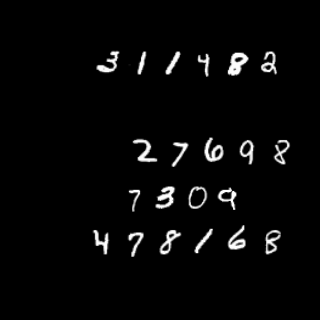 311482
27698
7309
478168